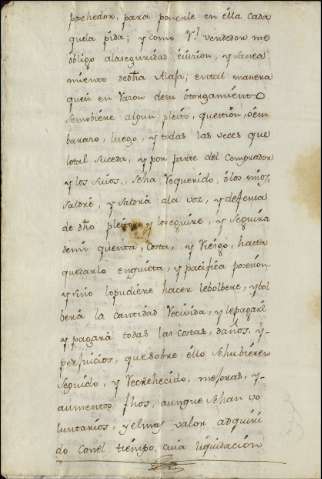 pochedor, para ponerle en ella cada
quela pida; y como Rl. vendedor me
obligo alaseguridad, evicion, y sanea
miento dedha Alaja; en tal manera
que si en razon desu otorgamiento
semobiere algun pleito, question, o em
barazo, luego, y todas las veces que
lo tal suceda, y por parte del Comprador
y los suios, seha requerido, o los mios,
saldre, y saldrá ala voz, y defensa
de dho pleito y loseguire, y seguira
demi quenta, costa, y riesgo, hasta
quedarlo en quieta, y pacifica posesion
y si no lo pudiere hacer le bolbere, y bol
berá la cantidad recivida, y le pagaré
y pagará todas las costas, daños, y
perjuicios, que sobre ello se hubieren
seguido, y recrehecido, mejoras, y
aumentos fhos, aunque sehan vo
luntarios, y el mas valor adquiri
do con el tiempo, cuia liquidacion